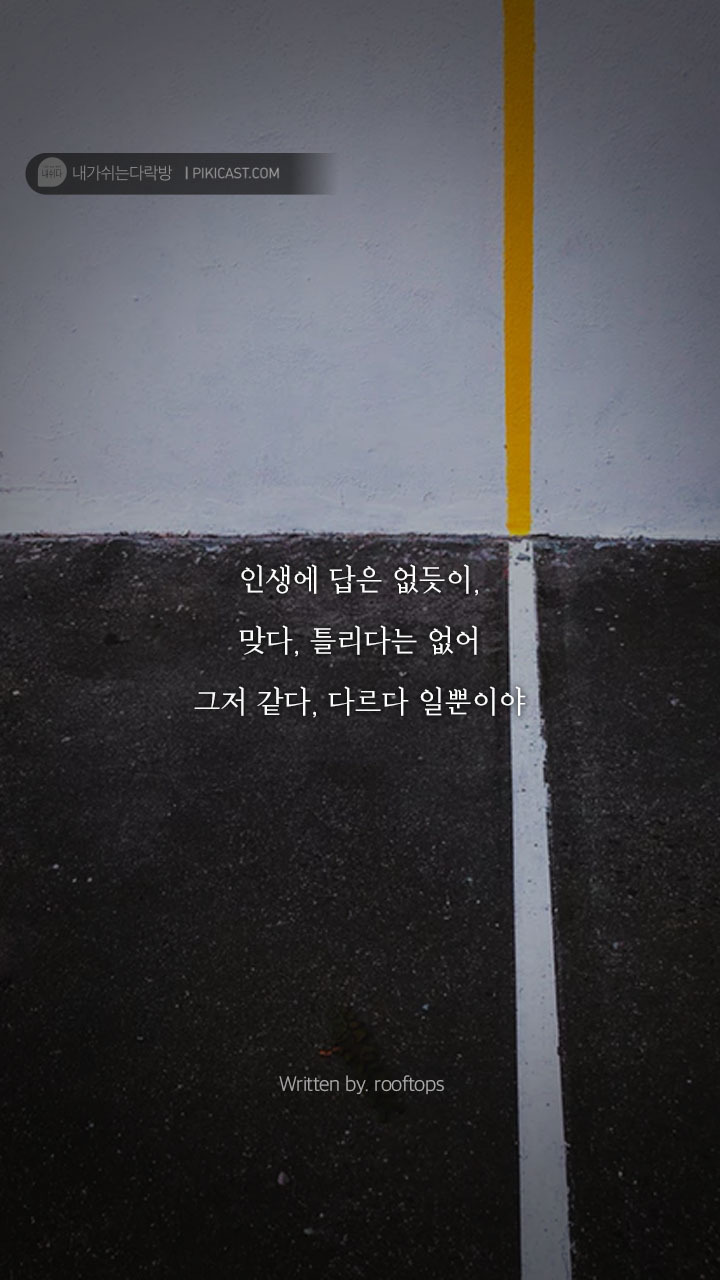 내쉬다
내가쉬는다락방 | PIKICAST.COM
인생에 답은 없듯이,
맞다, 틀리다는 없어
그저 같다, 다르다 일뿐이야
Written by. rooftops